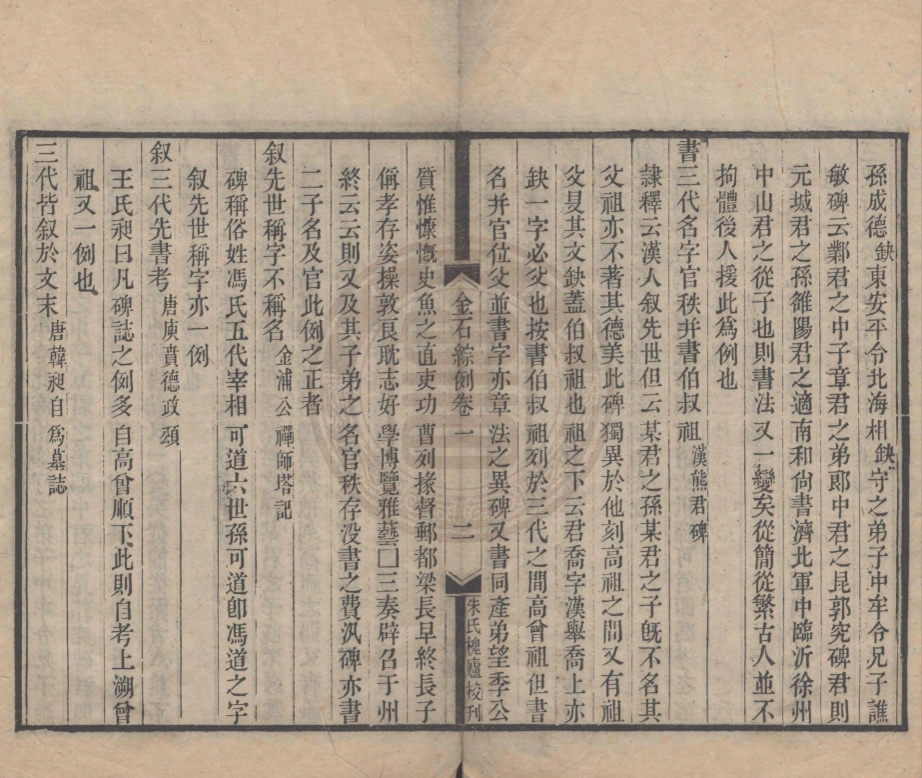 孫成德缺東安平令北海相缺守之弟子中牟令兄子譙
敏碑云鄴君之中子章君之弟郎中君之昆郭究碑君則
元城君之孫雒陽君之適南和尙書濟北軍中臨沂徐州
中山君之從子也則書法又一變矣從簡從繁古人並不
拘體後人援此爲例也
書三代名字官秩并書伯叔祖漢熊君碑
隷釋云漢人叙先世但云某君之孫某君之子旣不名其
父祖亦不著其德美此碑獨異於他刻高祖之間又有祖
父叟其文缺蓋伯叔祖也祖之下云君喬字漢舉喬上亦
缺一字必父也按書伯叔祖列於三代之間高曾祖但書
名并官位父並書字亦章法之異碑又書同產弟望季公
金石綜例卷一 二 朱氏槐廬校刊
質惟慷慨史魚之直吏功曹列掾督郵都梁長早終長子
偁孝存姿操敦良耽志好學博覽雅藝囗三奏辟召于州
終云云則又及其子弟之名官秩存没書之費汎碑亦書
二子名及官此例之正者
叙先世稱字不稱名金浦公禪師塔記
碑稱俗姓馮氏五代宰相可道六世孫可道卽馮道之字
叙先世稱字亦一例
叙三代先書考唐庾賁德政頌
王氏昶曰凡碑誌之例多自高曾順下此則自考上溯曾
祖又一例也
三代皆叙於文末唐韓昶自爲墓誌